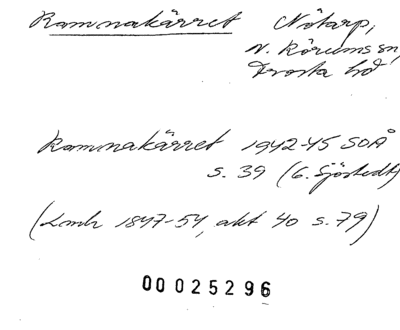 Ramnakärret Nötarp,
N. Rörums sn,
Frosta hd
Ramnakärret 1942-45 SOÅ
s. 39 (G. Sjöstedt)
(Lmh 1847-54, akt 40 s. 79)
00025296